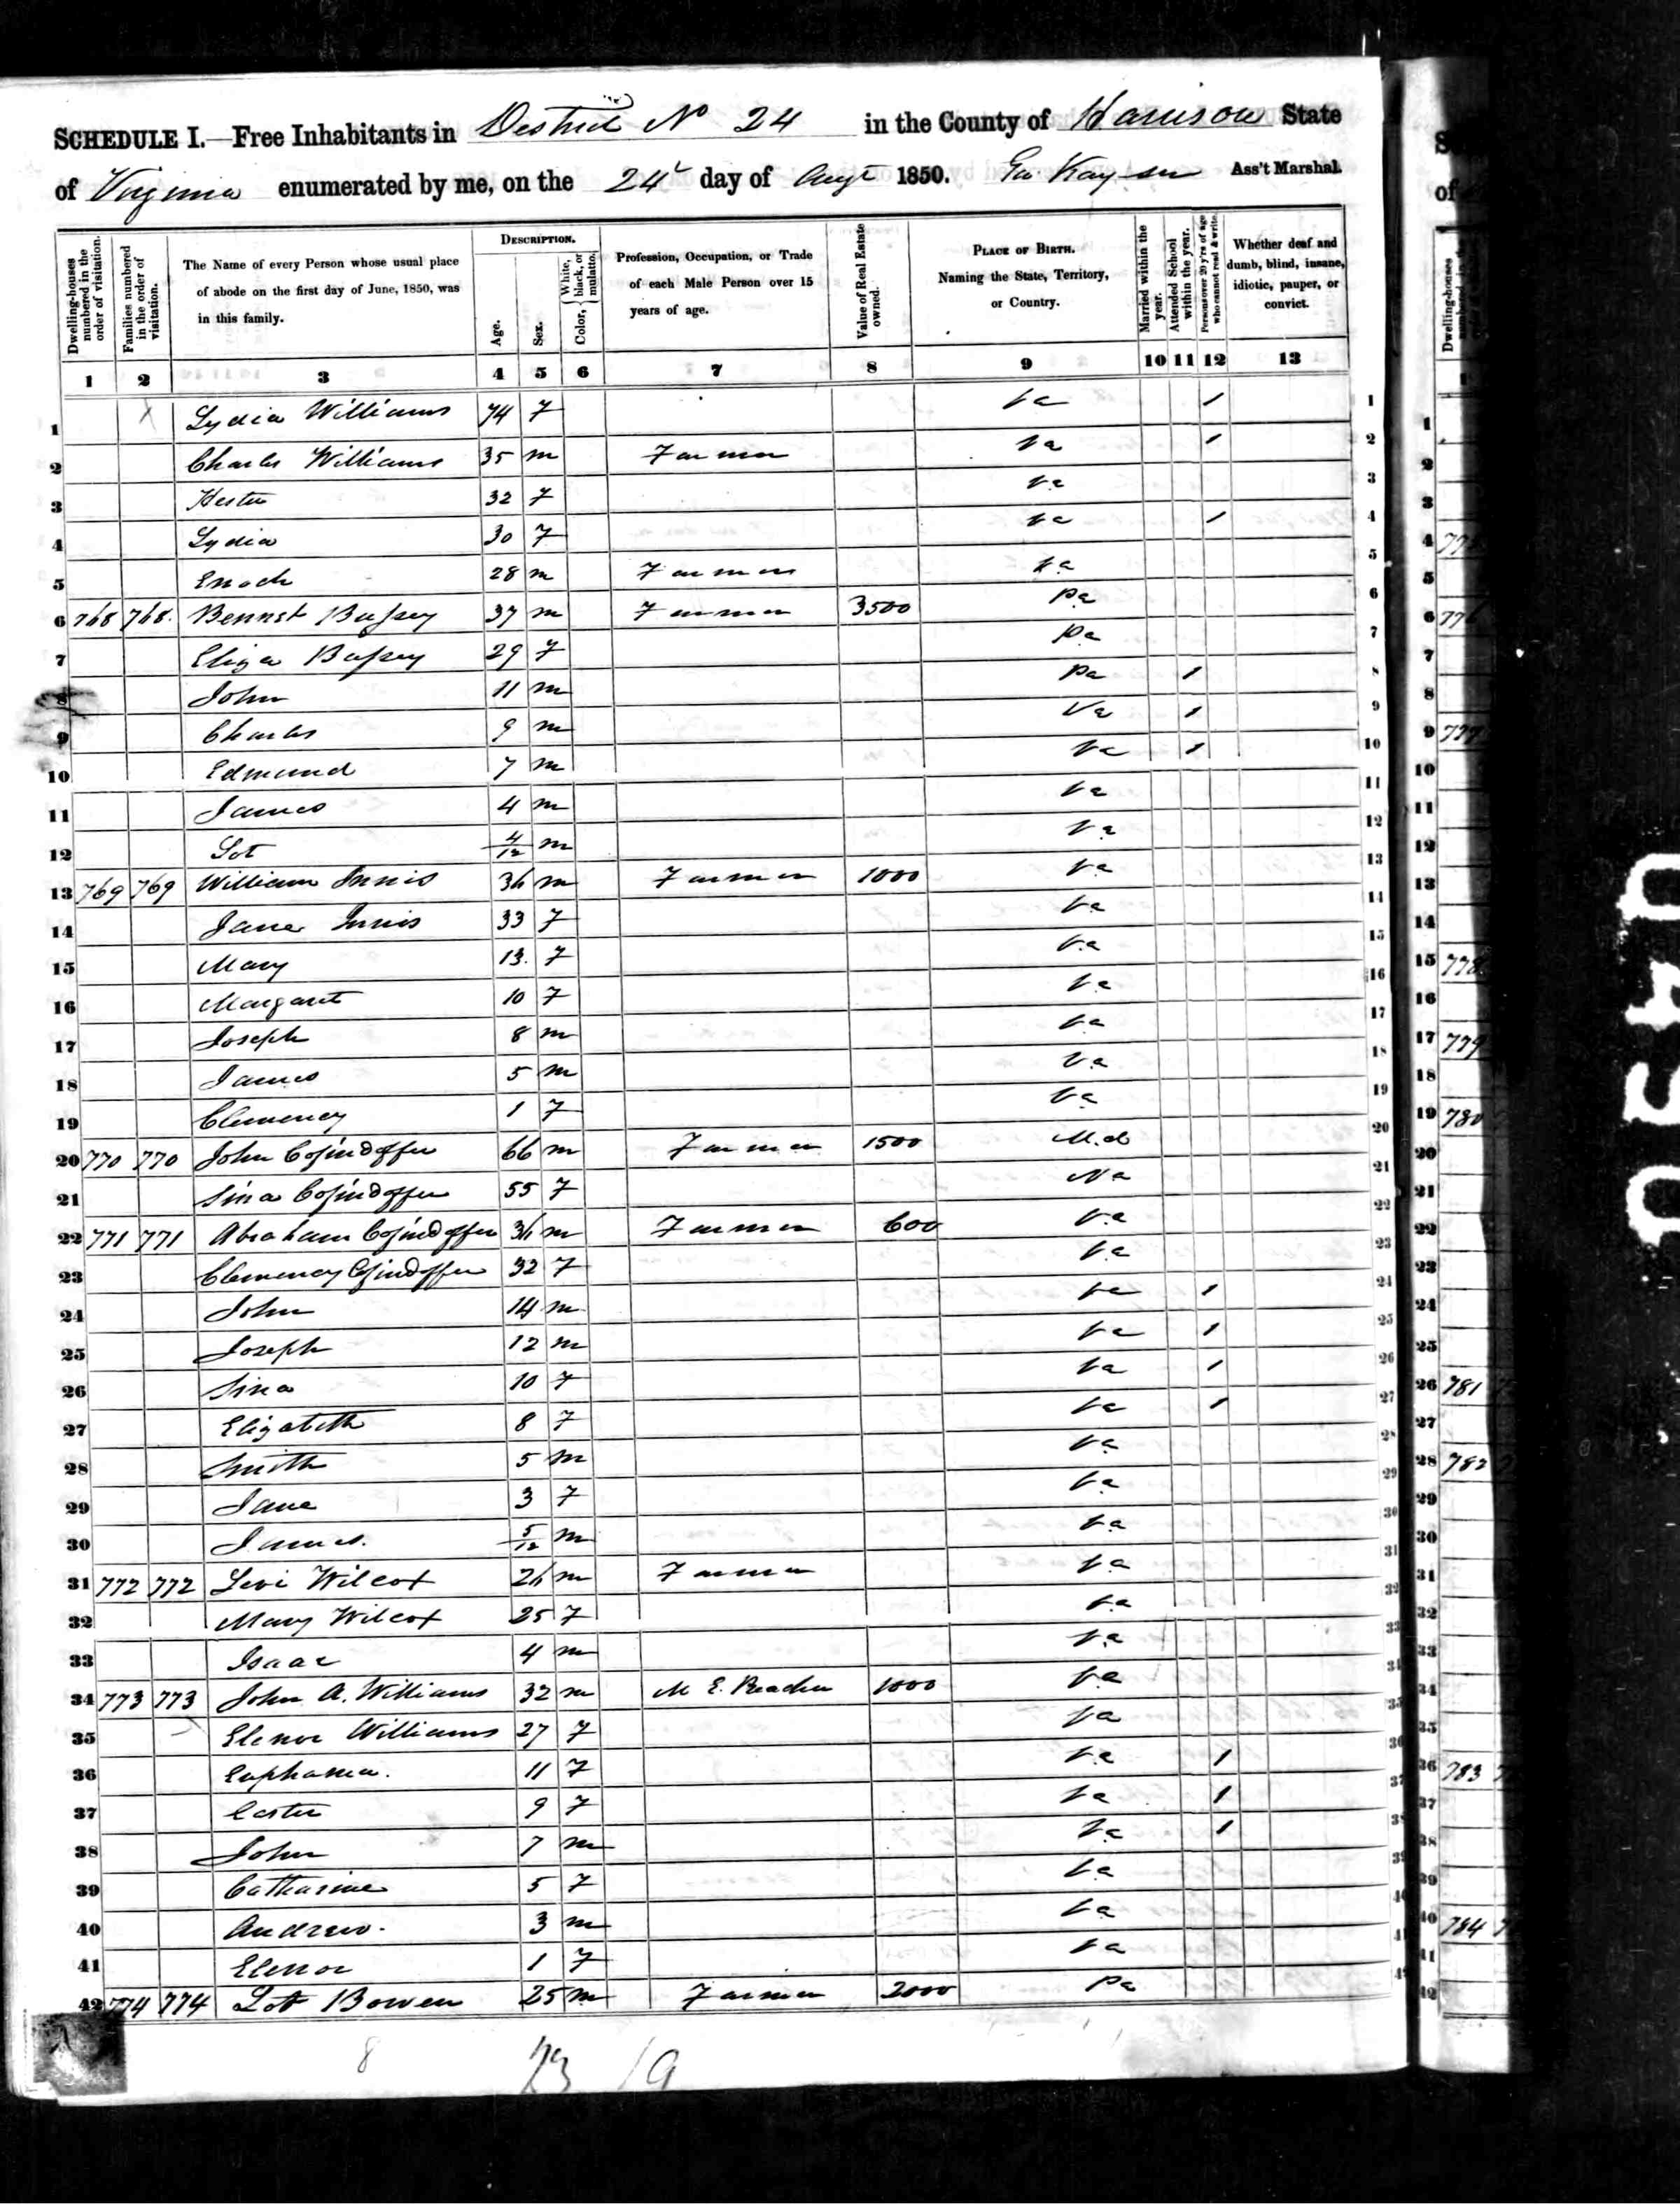 SCHEDULE I.—Free Inhabitants in District No 24 in the County of Harrison State
of Virginia enumerated by me, on the 24 day of Augt 1850. Ass't Marshal.
Dwelling-houses numbered in the order of visitation.
Families numbered in the order of visitation.
The Name of every Person whose usual place of abode on the first day of June, 1850, was in this family.
DESCRIPTION.
Age.
Sex.
Color, { White, black, or mulatto.
Profession, Occupation, or Trade of each Male Person over 15 years of age.
Value of Real Estate owned.
PLACE OF BIRTH. Naming the State, Territory, or Country.
Married within the year.
Attended School within the year.
Persons over 20 y'rs of age who cannot read & write.
Whether deaf and dumb, blind, insane, idiotic, pauper, or convict.
1 2 3 4 5 6 7 8 9 10 11 12 13
1 Lydia Williams 74 F Va 1 1
2 Charles Williams 35 m Farmer Va 1 2
3 Hester 32 F Va 3
4 Lydia 30 F Va 1 4
5 Enoch 28 m Farmer Va 5
6 768 768 Bennet Bassey 37 m Farmer 3500 Pa 6
7 Eliza Bassey 29 F Pa 7
8 John 11 m Pa 1 8
9 Charles 9 m Va 1 9
10 Edmund 7 m Va 1 10
11 James 4 m Va 11
12 Lot 4/12 m Va 12
13 769 769 William Innis 36 m Farmer 1000 Va 13
14 Jane Innis 33 F Va 14
15 Mary 13 F Va 15
16 Margaret 10 F Va 16
17 Joseph 8 m Va 17
18 James 5 m Va 18
19 Clemency 1 F Va 19
20 770 770 John 66 m Farmer 1500 Md 20
21 Sina 55 F Va 21
22 771 771 Abraham 36 m Farmer 600 Va 22
23 Clemency 32 F Va 23
24 John 14 m Va 1 24
25 Joseph 12 m Va 1 25
26 Sina 10 F Va 1 26
27 Elizabeth 8 F Va 1 27
28 Smith 5 m Va 28
29 Jane 3 F Va 29
30 James. 5/12 m Va 30
31 772 772 Levi Wilcox 26 m Farmer Va 31
32 Mary Wilcox 25 F Va 32
33 Isaac 4 m Va 33
34 773 773 John A. Williams 32 m M E. Preacher 1000 Va 34
35 Elenor Williams 27 F Va 35
36 Euphama. 11 F Va 1 36
37 Easter 9 F Va 1 37
38 John 7 m Va 1 38
39 Catharine 5 F Va 39
40 Andrew. 3 m Va 40
41 Elenor 1 F Va 41
42 774 774 Lot Bowen 25 m Farmer 2000 Pa 42
8 23 19